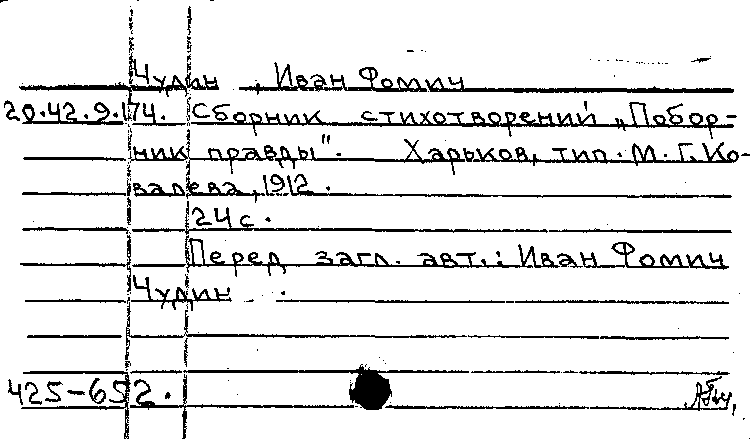 Чудин, Иван Фомич
20.42.9.174. Сборник стихотворений „Побор-
ник правды". Харьков, тип. М. Г. Ко-
валева, 1912.
24 с.
Перед загл. авт.: Иван Фомич
Чудин.
425-652.